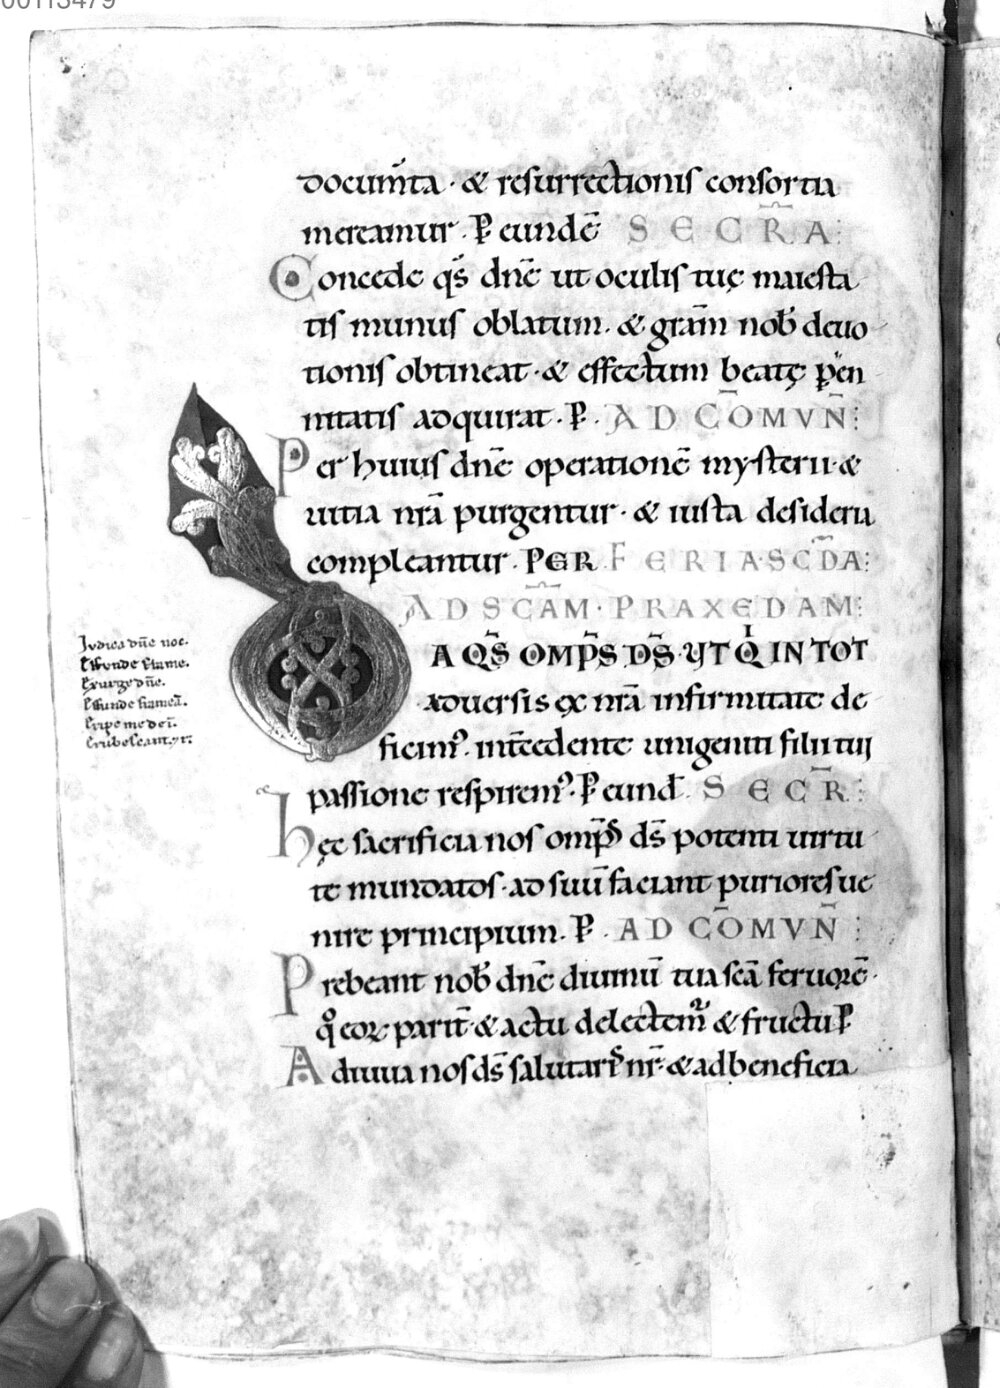 00113479
docum̄ta · & resurrectionis consortia
mereamur · P̄ eundē SECR̄A:
Concede qs̄ dn̄e ut oculis tuę maiesta
tis munus oblatum · & gr̄am nob̄ deuo
tionis obtineat · & effectum beatę p̱en
nitatis adquirat · P̄ · AD CŌMVN̄:
Per huius dn̄e operationē mysterii · &
uitia nr̄a purgentur · & iusta desideria
compleantur · PER FERIA SCD̄A:
AD SC̄AM · PRAXEDAM:
DA QS̄ OMP̄S DS̄ · VT Qͥ IN TOT
aduersis ex nr̄a infirmitate de
ficimꝰ · int̄cedente unigeniti filii tui
passione respiremꝰ · P̄ eund̄ SECR̄:
hęc sacrificia nos omp̄s ds̄ potenti uirtu
te mundatos · ad suū faciant puriores ue
nire principium · P̄ · AD CŌMVN̄:
Prebeant nob̄ dn̄e diuinū tua sc̄a feruorē ·
qͦ eoꝝ parit̄ & actu delectem̄r & fructu P̄
Adiuua nos ds̄ salutaris nr̄ · & ad beneficia
Iudica dn̄e noc.
Effunde frame.
Exurge dn̄e.
Effunde frameā.
Eripe me de i.
Erubescant. yr.